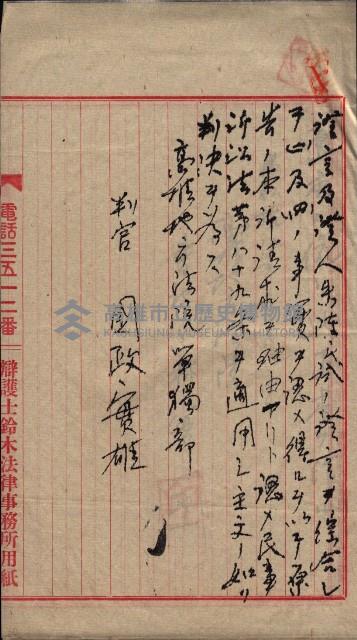 證言及證人朱陳氏試ノ證言ヲ綜合シ
及四ノ事實ヲ認メ得ヘク以テ原
告ノ本訴請求ヲ理由アリト認メ民事
訴訟法第八十九條ヲ適用シ主文ノ如ク
判決ヲ為ス
高雄地方法院單獨部
判官 國政實雄
電話三五一二番
辯護士鈴木法律事務所用紙
高雄市立歷史博物館
KAOHSIUNG MUSEUM OF HISTORY